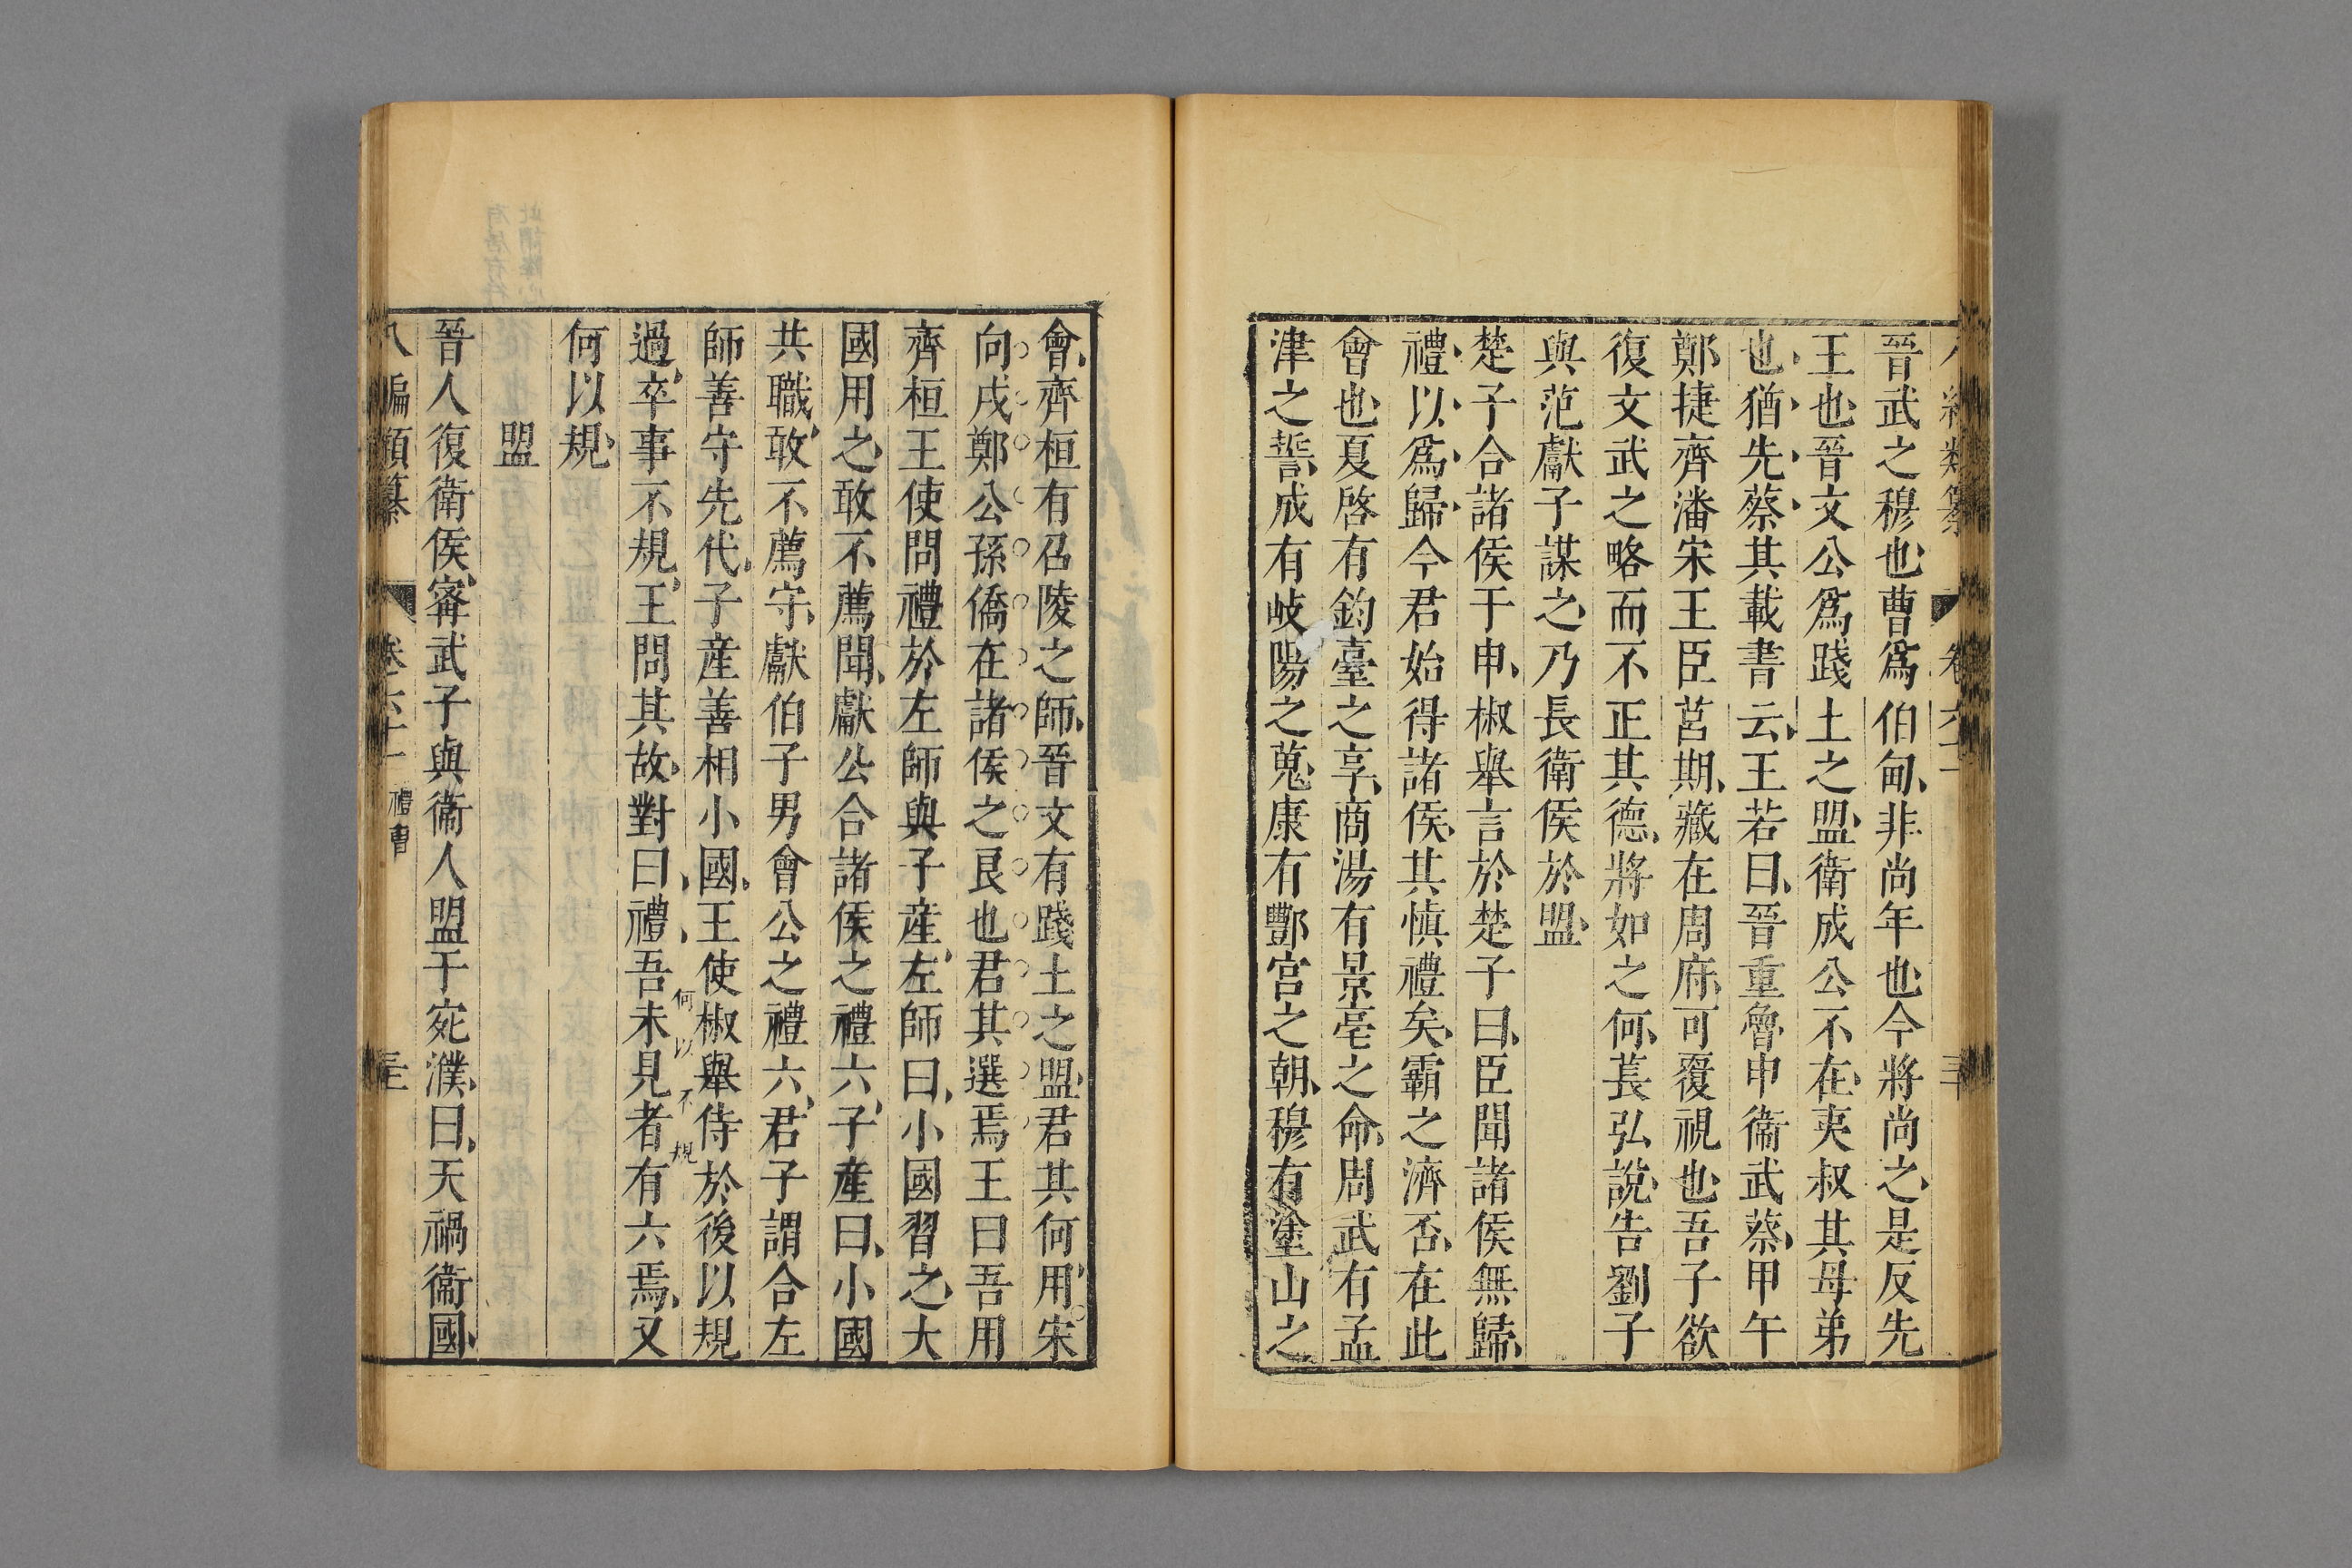 晉武之穆也曹爲伯甸非尚年也今將尚之是反先
王也晉文公爲踐土之盟衛成公不在夷叔其母弟
也猶先蔡其載書云王若曰晉重魯申衞武蔡甲午
鄭捷齊潘宋王臣莒期藏在周府可覆視也吾子欲
復文武之略而不正其德將如之何萇弘說告劉子
與范獻子謀之乃長衛侯於盟
楚子合諸侯于申椒舉言於楚子曰臣聞諸侯無歸
禮以爲歸今君始得諸侯其慎禮矣霸之濟否在此
會也夏啓有鈞臺之享商湯有景亳之命周武有孟
津之誓成有岐陽之蒐康有酆宮之朝穆有塗山之
會齊桓有召陵之師晉文有踐土之盟君其何用宋
向戌鄭公孫僑在諸侯之良也君其選焉王曰吾用
齊桓王使問禮於左師與子產左師曰小國習之大
國用之敢不薦聞獻公合諸侯之禮六子產曰小國
共職敢不薦守獻伯子男會公之禮六君子謂合左
師善守先代子產善相小國王使椒舉侍於後以規
何以不規
過卒事不規王問其故對曰禮吾未見者有六焉又
何以規
盟
晉人復衛侯甯武子與衞人盟于宛濮曰天禍衞國
八編類纂 卷六十一 禮會